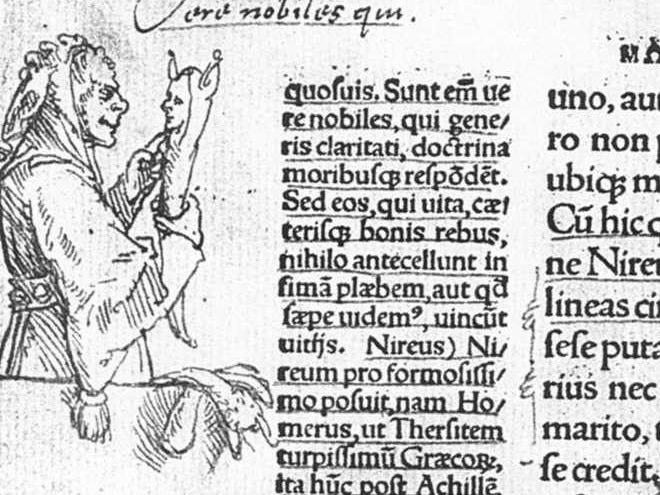 Vere nobiles qui.
quoſuis. Sunt em̄ ue
re nobiles, qui gene/
ris claritati, doctrina
moribuſꝗ reſpōdēt.
Sed eos, qui uita, cæt
teriſꝗ bonis rebus,
nihilo antecellunt in
fimā plæbem, aut qđ
ſæpe uidemꝰ, uincūt
uitijs. Nireus) Ni/
reum pro formoſiſſi/
mo poſuit, nam Ho/
merus, ut Therſitem
turpiſſimū Græcoꝝ,
ita hūc poſt Achillē
MA
uno, au
ro non p
ubiꝗ m
Cū hic c
ne Nireu
lineas cir
ſeſe puta
rius nec
marito, t
ſe credit,